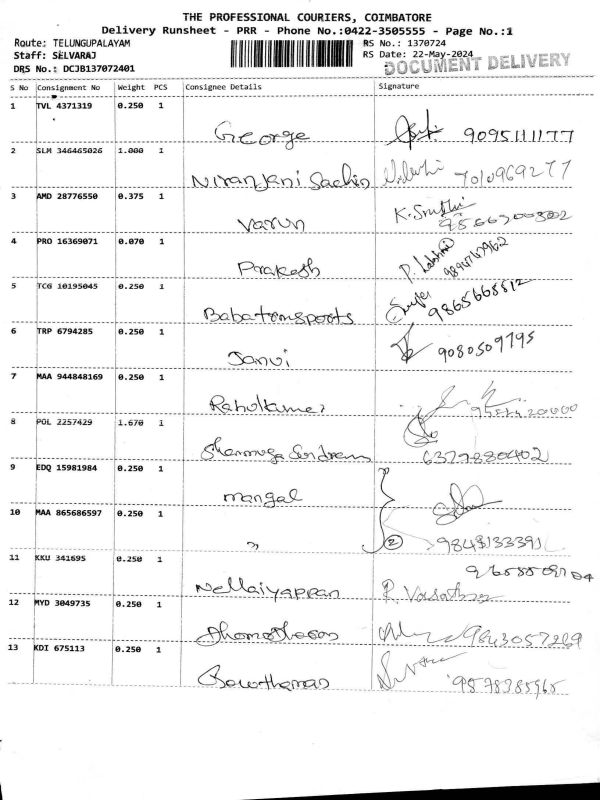 THE PROFESSIONAL COURIERS, COIMBATORE
Delivery Runsheet - PRR - Phone No.:0422-3505555 - Page No.:1
Route: TELUNGUPALAYAM RS No.: 1370724
Staff: SELVARAJ RS Date: 22-May-2024
DRS No.: DCJB137072401 DOCUMENT DELIVERY
S No Consignment No Weight PCS Consignee Details Signature
1 TVL 4371319 0.250 1
George 9095111177
2 SLM 346465026 1.000 1
Niranjani Sachin 7010969277
3 AMD 28776550 0.375 1
Varun K. Sruthi
4 PRO 16369071 0.070 1
Prakesh P. Lakshmi
5 TCG 10195045 0.250 1
Babatomsports 9865668812
6 TRP 6794285 0.250 1
Janvi 9080509795
7 MAA 944848169 0.250 1
Rahulkumar
8 POL 2257429 1.670 1
Shanmuga Sundram 6379880402
9 EDQ 15981984 0.250 1
mangal
10 MAA 865686597 0.250 1
" 2
11 KKU 341695 0.250 1
Nellaiyappan
12 MYD 3049735 0.250 1
Dhomotharan 9843057269
13 KDI 675113 0.250 1
Gowthaman 9578385965